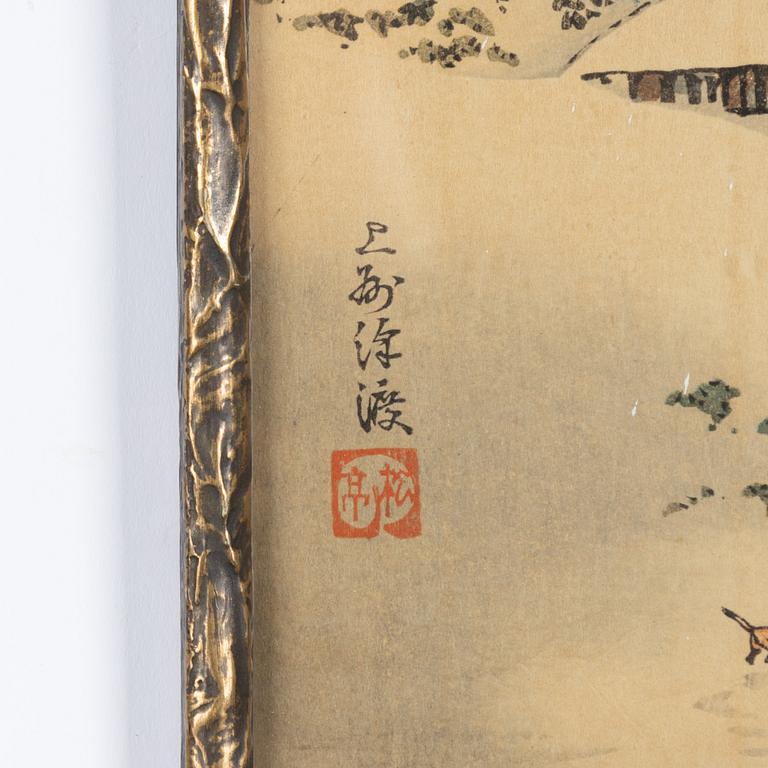 上州徐渡
松亭